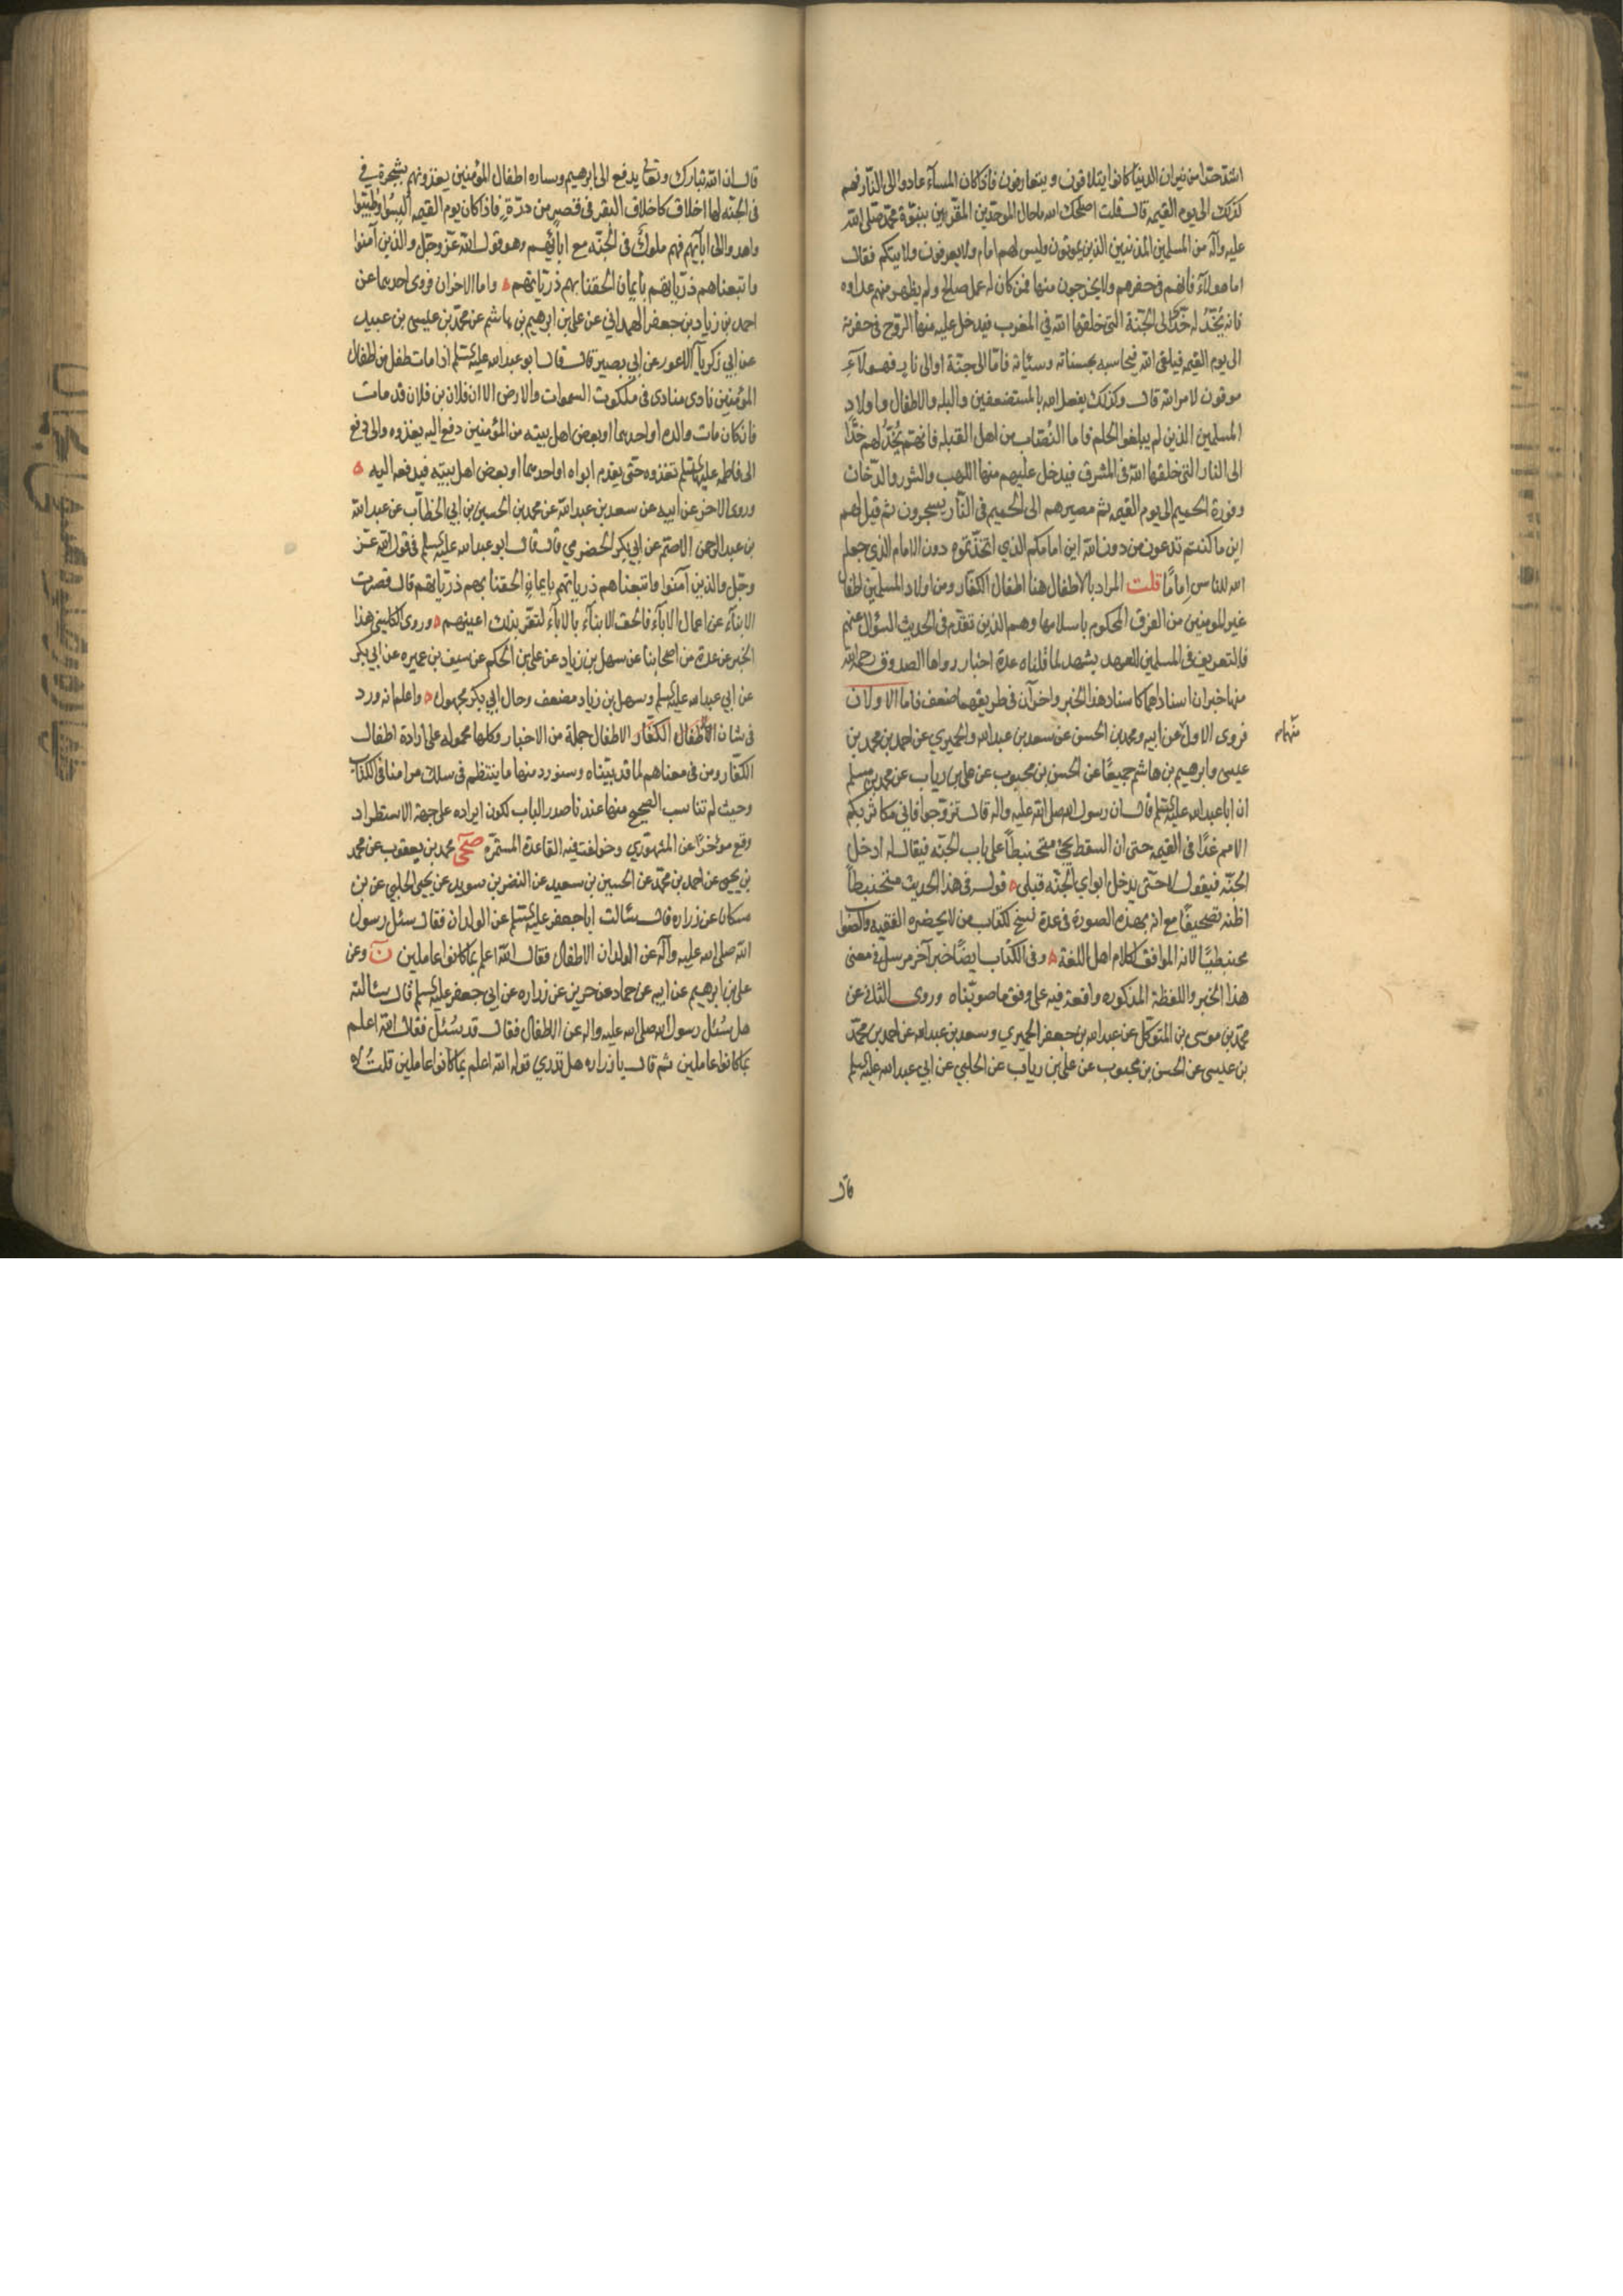 اشدّ حدّا من نيران الدنيا كانوا يتلاقون و يتعارفون فاذا كان المسآء عادوا الى النّار فهم
كذلك الى يوم القيمه قال قلت اصلحك الله ما حال الموحّدين المقرّين بنبوّة محمّد صلى الله
عليه وآله من المسلمين المذنبين الذين يموتون وليس لهم امام ولا يعرفون ولايتكم فقال
اما هولآء فانّهم فى حفرهم ولا يخرجون منها فمن كان له عمل صالح ولم يظهر منهم عداوه
فانه يُخدّ له خدّاً الى الجنّة التى خلقها الله في المغرب فيدخل عليه منها الروح فى حفرته
الى يوم القيمه فيلقى الله فيحاسبه بحسناته وسيّاته فامّا الى جنّة او الى نار فهولآءِ
موقون لامر الله قال وكذلك يفعل الله بالمستضعفين والبله والاطفال واولاد
المسلمين الذين لم يبلغوا الحلم فاما النُصّاب من اهل القبله فانهم يُخدّ لهم خدًّا
الى النار التى خلقها الله فى المشرق فيدخل عليهم منها اللهب والشرر والدّخان
وفورة الحميم الى يوم القيمه ثم مصيرهم الى الحميم فى النّار يسجرون ثم قيل لهم
اين ما كنتم تدعون من دون الله اين امامكم الذي اتخذتموه دون الامام الذي جعله
الله للناس اِمامًا قلت المراد بالاطفال هنا اطفال الكفّار ومن اولاد المسلمين اطفال
غير المومنين من الفرق المحكوم باسلامها وهم الذين تقدّم فى الحديث السؤال عنهم
فالتعريف فى المسلمين للعهد يشهد لما قلناه عدة اخبار رواها الصدوق رحمه الله
منها خبران اسنادهما كاسناد هذا الخبر واخرآن فى طريقهما ضعف فاما الاولان
فروى الاوّل عن ابيه ومحمد بن الحسن عن سعد بن عبد الله والحميري عن احمد بن محمد بن
عيسى وابرهيم بن هاشم جميعًا عن الحسن بن محبوب عن على بن رياب عن محمد بن مسلم
ان ابا عبد الله عليه السلم قال ان رسول الله صلى الله عليه واله قال تزوّجوا فاني مكاثر بكم
الامم غدًا فى القيمه حتى ان السقط يجئ منحبنطئاً على باب الجنّه فيقال له ادخل
الجنّه فيقول لا حتّى يدخل ابواي الجنّه قبلي قوله فى هذا الحديث منحبنطئاً
اظنه تصحيفًا مع انه بهذه الصورة فى عدة نسخ لكتاب من لا يحضره الفقيه والصّواب
محبنطيًا لانه الموافق لكلام اهل اللغة وفى الكتاب ايضًا خبر آخر مرسل فى معنى
هذا الخبر واللفظة المذكوره واقعة فيه على وفق ما صوّبناه وروى الثانى عن
محمّد بن موسى بن المتوكل عن عبد الله بن جعفر الحميري وسعد بن عبد الله عن احمد بن محمّد
بن عيسى عن الحسن بن محبوب عن على بن رياب عن الحلبي عن ابي عبد الله عليه السلم
قال
قال ان الله تبارك وتعالى يدفع الى ابرهيم وساره اطفال المؤمنين يغذونهم بشجرة في
فى الجنّه لها اخلاف كاخلاف البقر فى قصر من درّة فاذا كان يوم القيمه اُلبسُوا وطُيّبُوا
واهدوا الى ابآئهم فهم ملوك فى الجنّه مع ابآئهم وهو قول الله عزّ وجلّ والذين آمنوا
واتبعناهم ذرّياتهم بايمان الحقنا بهم ذرّياتهم واما الاخران فروى احدهما عن
احمد بن زياد بن جعفر الهمداني عن على بن ابرهيم بن هاشم عن محمّد بن عيسى بن عبيد
عن ابي زكريآ اللاعور عن ابي بصير قال قال ابو عبد الله عليه السلم اذا مات طفل من اطفال
المؤمنين نادى منادى فى ملكوت السموات والارض الا ان فلان بن فلان قد مات
فان كان مات والده او احدهما او بعض اهل بيته من المؤمنين دفع اليه يغذوه والى دفع
الى فاطمه عليها السلم تغذوه حتى يقدم ابواه او احدهما او بعض اهل بيته فيدفعه اليه
وروى الاخر عن ابيه عن سعد بن عبد الله عن محمد بن الحسين بن ابي الخطّاب عن عبد الله
بن عبد الرحمن الاصمّ عن ابي بكر الحضرمي قال قال ابو عبد الله عليه السلم فى قول الله عزّ
وجلّ والذين آمنوا واتبعناهم ذرياتهم بايمان الحقنا بهم ذرّياتهم قال قصرت
الابنآء عن اعمال الابآء فالحق الابنآء بالابآء لتقرّ بذلك اعينهم وروى الكليني هذا
الخبر عن عدة من اصحابنا عن سهل بن زياد عن على بن الحكم عن سيف بن عميره عن ابي بكر
عن ابي عبد الله عليه السلم وسهل بن زياد مضعف وحال ابي بكر مجهول واعلم انه ورد
فى شان الاطفال الكفار الاطفال جملة من الاخبار وكلها محموله على ارادة اطفال
الكفّار ومن فى معناهم لما قد بيّناه وسنورد منها ما ينتظم فى سلك مرامنا فى الكتاب
وحيث لم تناسب الصحيح منها عندنا صدر الباب لكون ايراده على جهة الاستطراد
وقع مؤخرًا عن المشهوري وخولفت فيه القاعدة المستمرّه صحى محمد بن يعقوب عن محمد
بن يحيى عن احمد بن محمّد عن الحسين بن سعيد عن النضر بن سويد عن يحيى الحلبي عن بن
مسكان عن زراره قال سئالت ابا جعفر عليه السلم عن الولدان فقال سئل رسول
الله صلى الله عليه وآله عن الولدان الاطفال فقال الله اعلم بما كانوا عاملين ن وعن
على بن ابرهيم عن ابيه عن حماد عن حريز عن زراره عن ابي جعفر عليه السلم قال سئالته
هل سُئل رسول الله صلى الله عليه واله عن الاطفال فقال قد سُئل فقال الله اعلم
بما كانوا عاملين ثم قال يا زراره هل تدري قوله الله اعلم بما كانوا عاملين قلتُ لا